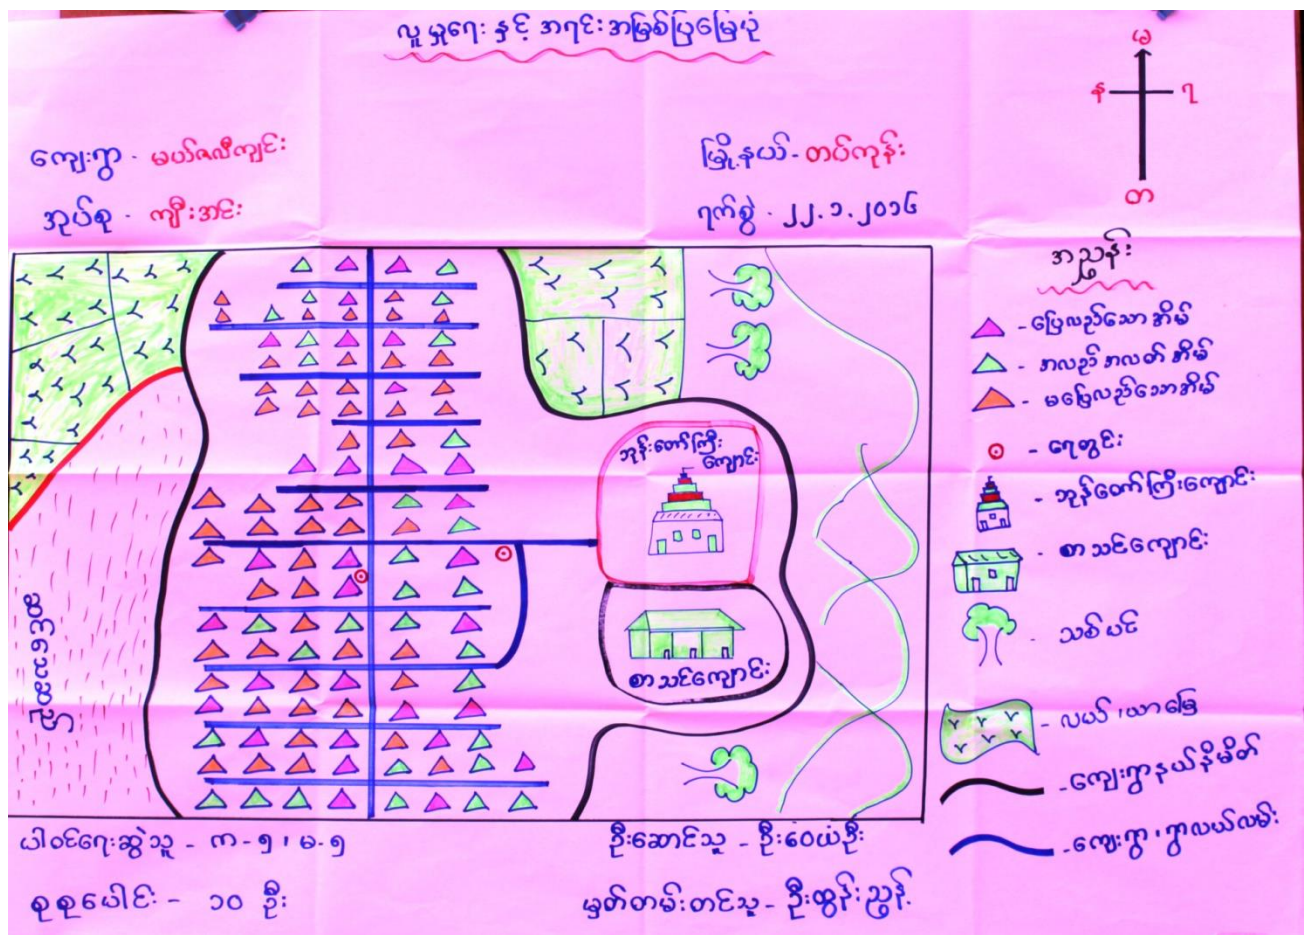 လူမှုရေး နှင့် အရင်းအမြစ်ပြမြေပုံ
မ
န
ရ
တ
ကျေးရွာ - မယ်ဇလီကျင်း
မြို့နယ် - တပ်ကုန်း
အုပ်စု - ကျီးအင်း
ရက်စွဲ - ၂၂.၁.၂၀၁၆
အညွှန်း
- ပြေလည်သောအိမ်
- အလည်အလတ်အိမ်
- မပြေလည်သောအိမ်
- ရေတွင်း
- ဘုန်တော်ကြီးကျောင်း
- စာသင်ကျောင်း
- သစ်ပင်
- လယ်၊ ယာမြေ
- ကျေးရွာနယ်နိမိတ်
- ကျေးရွာ၊ ရွာလယ်လမ်း
ဘုန်းတော်ကြီး
ကျောင်း
စာသင်ကျောင်း
ပါဝင်ရေးဆွဲသူ - က-၅၊ မ-၅
ဦးဆောင်သူ - ဦးဝေယံဦး
စုစုပေါင်း - ၁၀ ဦး
မှတ်တမ်းတင်သူ - ဦးထွန်းညွန့်